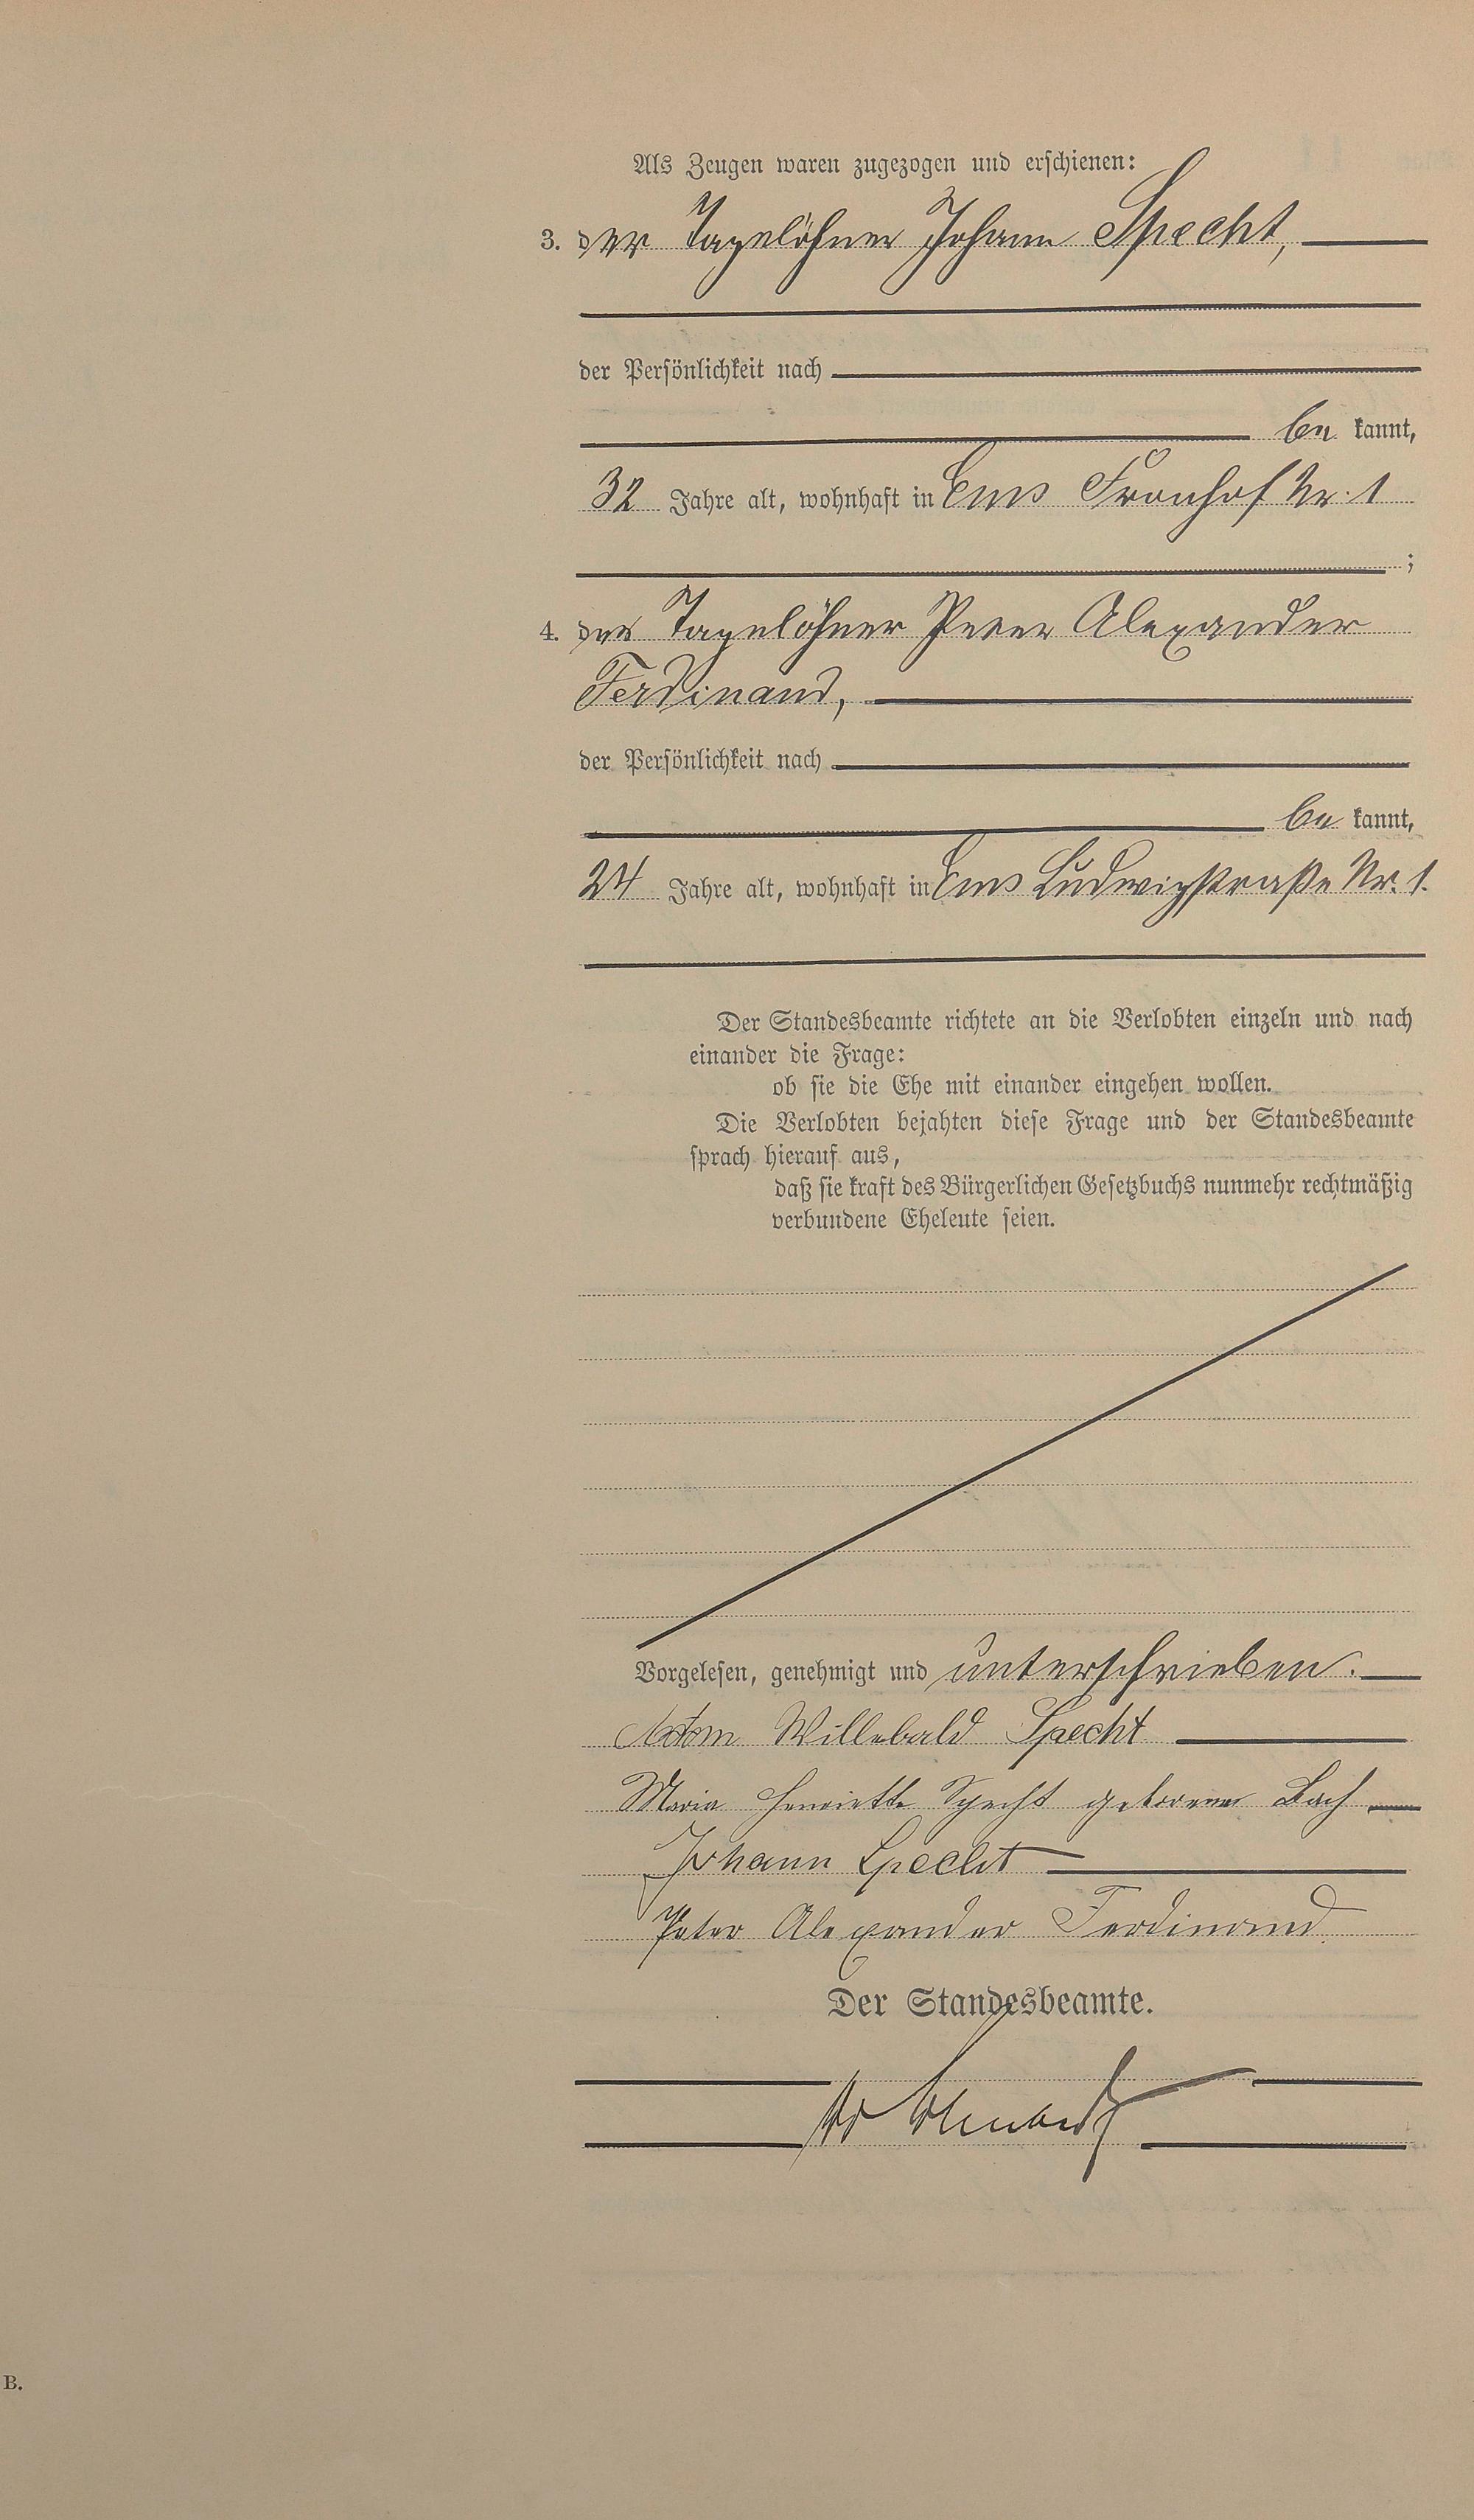 Als Zeugen waren zugezogen und erschienen:
3. der Tagelöhner Johann Specht,
der Persönlichkeit nach
be kannt,
32 Jahre alt, wohnhaft in Ems Fronhof Nr. 1
;
4. der Tagelöhner Peter Alexander
Ferdinand,
der Persönlichkeit nach
be kannt,
24 Jahre alt, wohnhaft in Ems Ludwigstraße Nr. 1.
Der Standesbeamte richtete an die Verlobten einzeln und nach
einander die Frage:
ob sie die Ehe mit einander eingehen wollen.
Die Verlobten bejahten diese Frage und der Standesbeamte
sprach hierauf aus,
daß sie kraft des Bürgerlichen Gesetzbuchs nunmehr rechtmäßig
verbundene Eheleute seien.
Vorgelesen, genehmigt und unterschrieben.
Willebald Specht
Maria Henriette Specht geborene Bach
Johann Specht
Peter Alexander Ferdinand
Der Standesbeamte.
B.